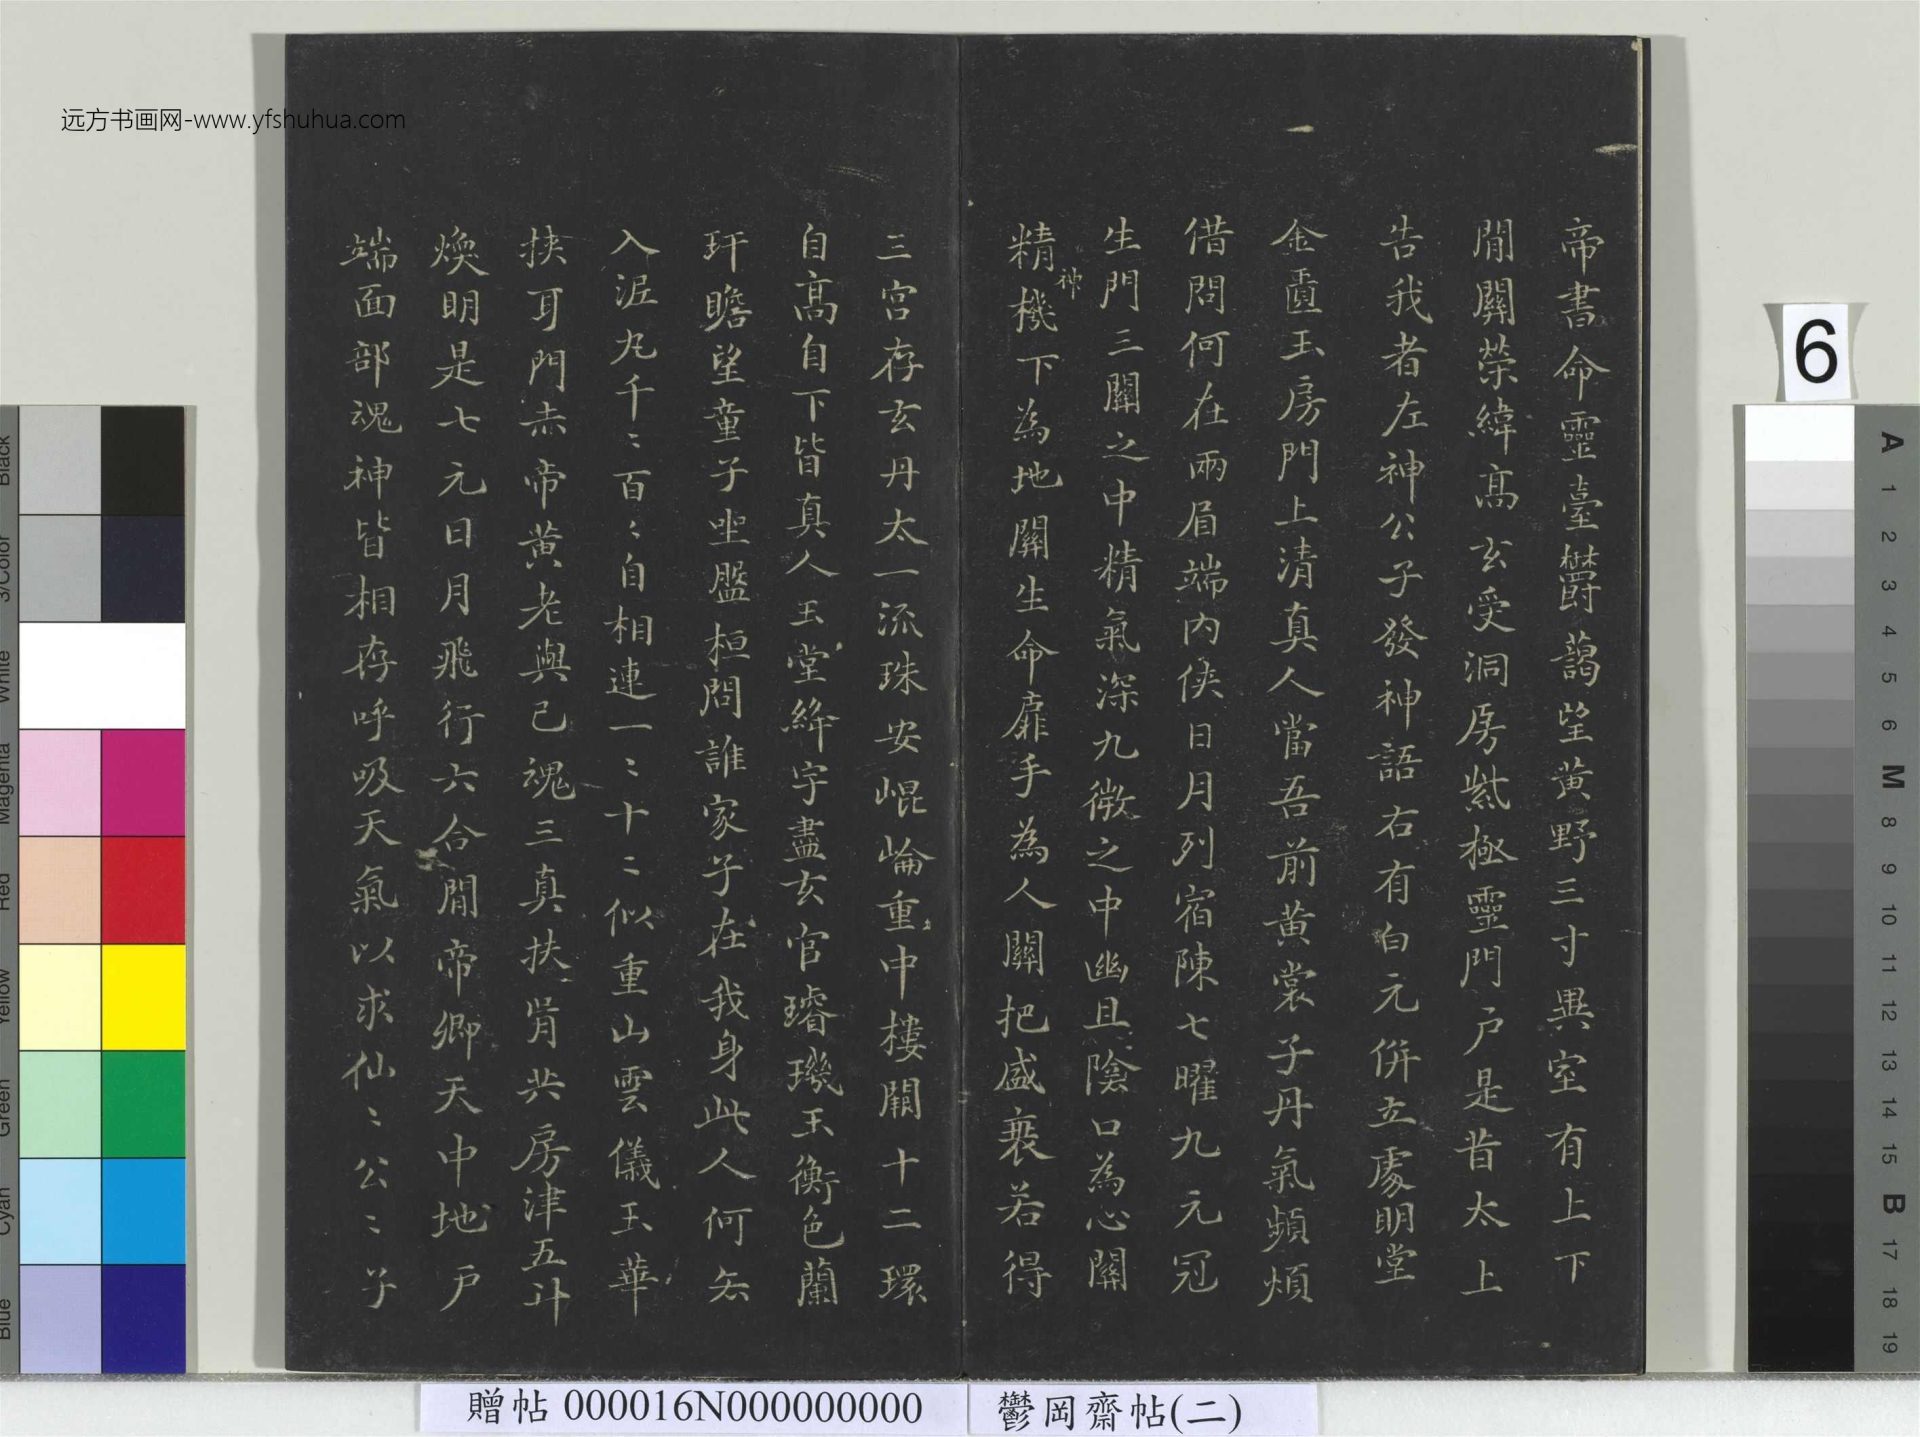 远方书画网-www.yfshuhua.com
帝書命靈臺欝藹望黃野三寸異室有上下
閒關榮緯髙玄受洞房紫極靈門戶是昔太上
告我者左神公子發神語右有白元併立處明堂
金匱玉房門上清真人當吾前黃裳子丹氣頻煩
借問何在兩眉端內俠日月列宿陳七曜九元冠
生門三關之中精氣深九微之中幽且陰口為心關
精神機下為地關生命扉手為人關把盛衰若得
三宮存玄丹太一流珠安崐崘重〻中樓閣十二環
自髙自下皆真人玉堂絳宇盡玄宮璿璣玉衡色蘭
玕瞻望童子坐盤桓問誰家子在我身此人何去
入泥丸千〻百〻自相連一〻十〻似重山雲儀玉華
挾耳門赤帝黃老與己魂三真扶胥共房津五斗
煥明是七元日月飛行六合閒帝鄉天中地戶
端面部魂神皆相存呼吸天氣以求仙〻公〻子
6
贈帖 000016N000000000
鬱岡齋帖(二)
Black
3/Color
White
Magenta
Red
Yellow
Green
Cyan
Blue
A
1
2
3
4
5
6
M
8
9
10
11
12
13
14
15
B
17
18
19